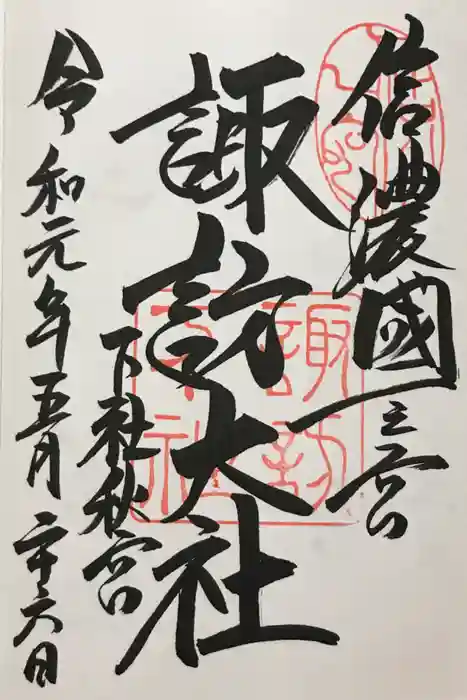 信濃國一之宮
諏訪大社
下社秋宮
令和元年五月二十六日
諏訪大社